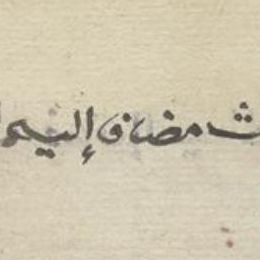 مضاف إليه